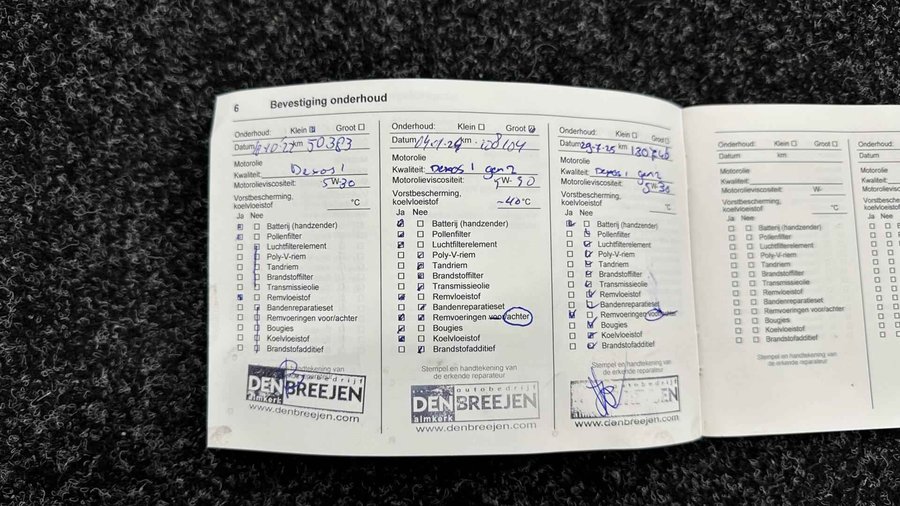 6 Bevestiging onderhoud
Onderhoud: Klein Groot
Datum km 50383
Motorolie
Kwaliteit: Dexos 1
Motorolieviscositeit: 5W-30
Vorstbescherming,
koelvloeistof °C
Ja Nee
Batterij (handzender)
Pollenfilter
Luchtfilterelement
Poly-V-riem
Tandriem
Brandstoffilter
Transmissieolie
Remvloeistof
Bandenreparatieset
Remvoeringen voor/achter
Bougies
Koelvloeistof
Brandstofadditief
handtekening van
autobedrijf
DEN BREEJEN
almkerk
www.denbreejen.com
Onderhoud: Klein Groot
Datum km
Motorolie
Kwaliteit: Dexos 1 gen2
Motorolieviscositeit: 5W-30
Vorstbescherming,
koelvloeistof -40°C
Ja Nee
Batterij (handzender)
Pollenfilter
Luchtfilterelement
Poly-V-riem
Tandriem
Brandstoffilter
Transmissieolie
Remvloeistof
Bandenreparatieset
Remvoeringen voor/achter
Bougies
Koelvloeistof
Brandstofadditief
Stempel en handtekening van
de erkende reparateur
autobedrijf
DEN BREEJEN
almkerk
www.denbreejen.com
Onderhoud: Klein Groot
Datum 29-7-25 km 130746
Motorolie
Kwaliteit: Dexos 1 gen2
Motorolieviscositeit: 5W-30
Vorstbescherming,
koelvloeistof °C
Ja Nee
Batterij (handzender)
Pollenfilter
Luchtfilterelement
Poly-V-riem
Tandriem
Brandstoffilter
Transmissieolie
Remvloeistof
Bandenreparatieset
Remvoeringen voor/achter
Bougies
Koelvloeistof
Brandstofadditief
Stempel en handtekening van
de erkende reparateur
autobedrijf
BREEJEN
www.denbreejen.com
Onderhoud: Klein Groot
Datum km
Motorolie
Kwaliteit:
Motorolieviscositeit: W-
Vorstbescherming,
koelvloeistof °C
Ja Nee
Batterij (handzender)
Pollenfilter
Luchtfilterelement
Poly-V-riem
Tandriem
Brandstoffilter
Transmissieolie
Remvloeistof
Bandenreparatieset
Remvoeringen voor/achter
Bougies
Koelvloeistof
Brandstofadditief
Stempel en handtekening van
de erkende reparateur
Onderhoud:
Datum
Motorolie
Kwaliteit:
Ja Nee